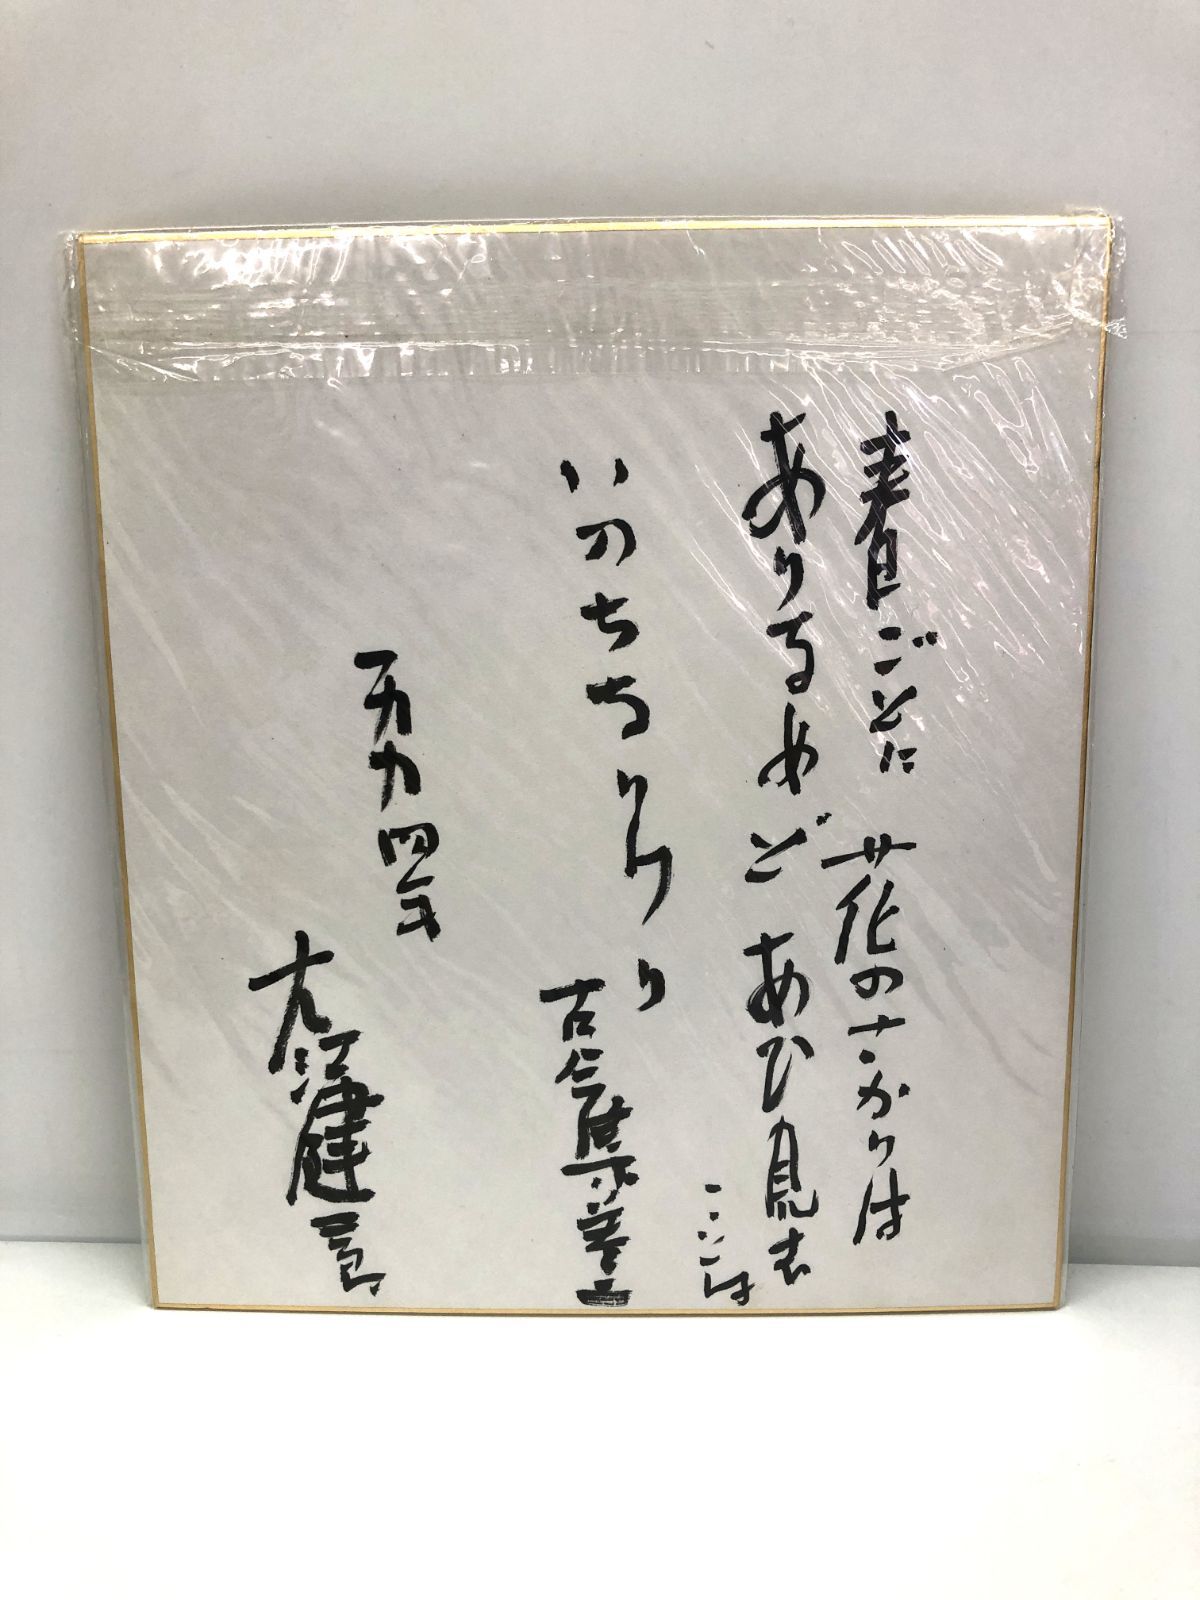 春ごとに 花のさかりは
ありなめど あひ見む
ことは
いのちなりけり
古今集 巻二
一九九四年
大江健三郎